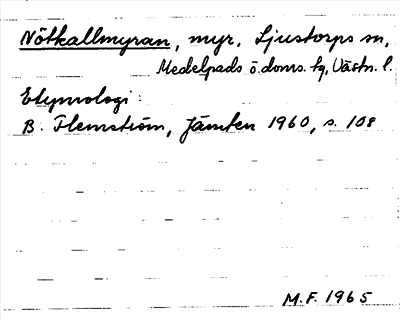 Nötkallmyran, myr, Ljustorps sn,
Medelpads ö. doms. tg, Västn. l.
Etymologi:
B. Flemström, Jämten 1960, s. 108
M.F. 1965